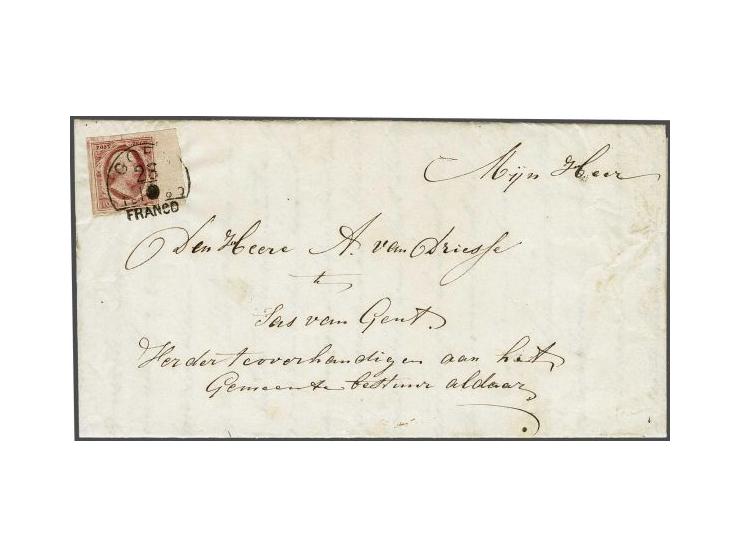 FRANCO
Mijn Heer
Den Heere A. van Driesse
te
Sas van Gent.
Verder te overhandigen aan het
Gemeente bestuur aldaar